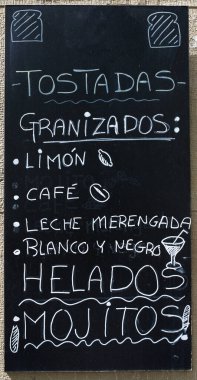 -TOSTADAS-
GRANIZADOS:
• LIMÓN
• CAFÉ
• LECHE MERENGADA
• BLANCO Y NEGRO
HELADOS
¡MOJITOS!